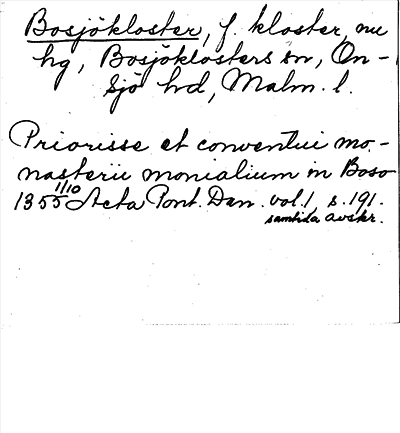 Bosjökloster, f. kloster, nu
hg, Bosjöklosters sn, On-
sjö hd, Malm. l.
Priorisse et conventui mo-
nasterii monialium in Boso
1355 1/10 Acta Pont. Dan. vol. 1, s. 191.
samtida avskr.